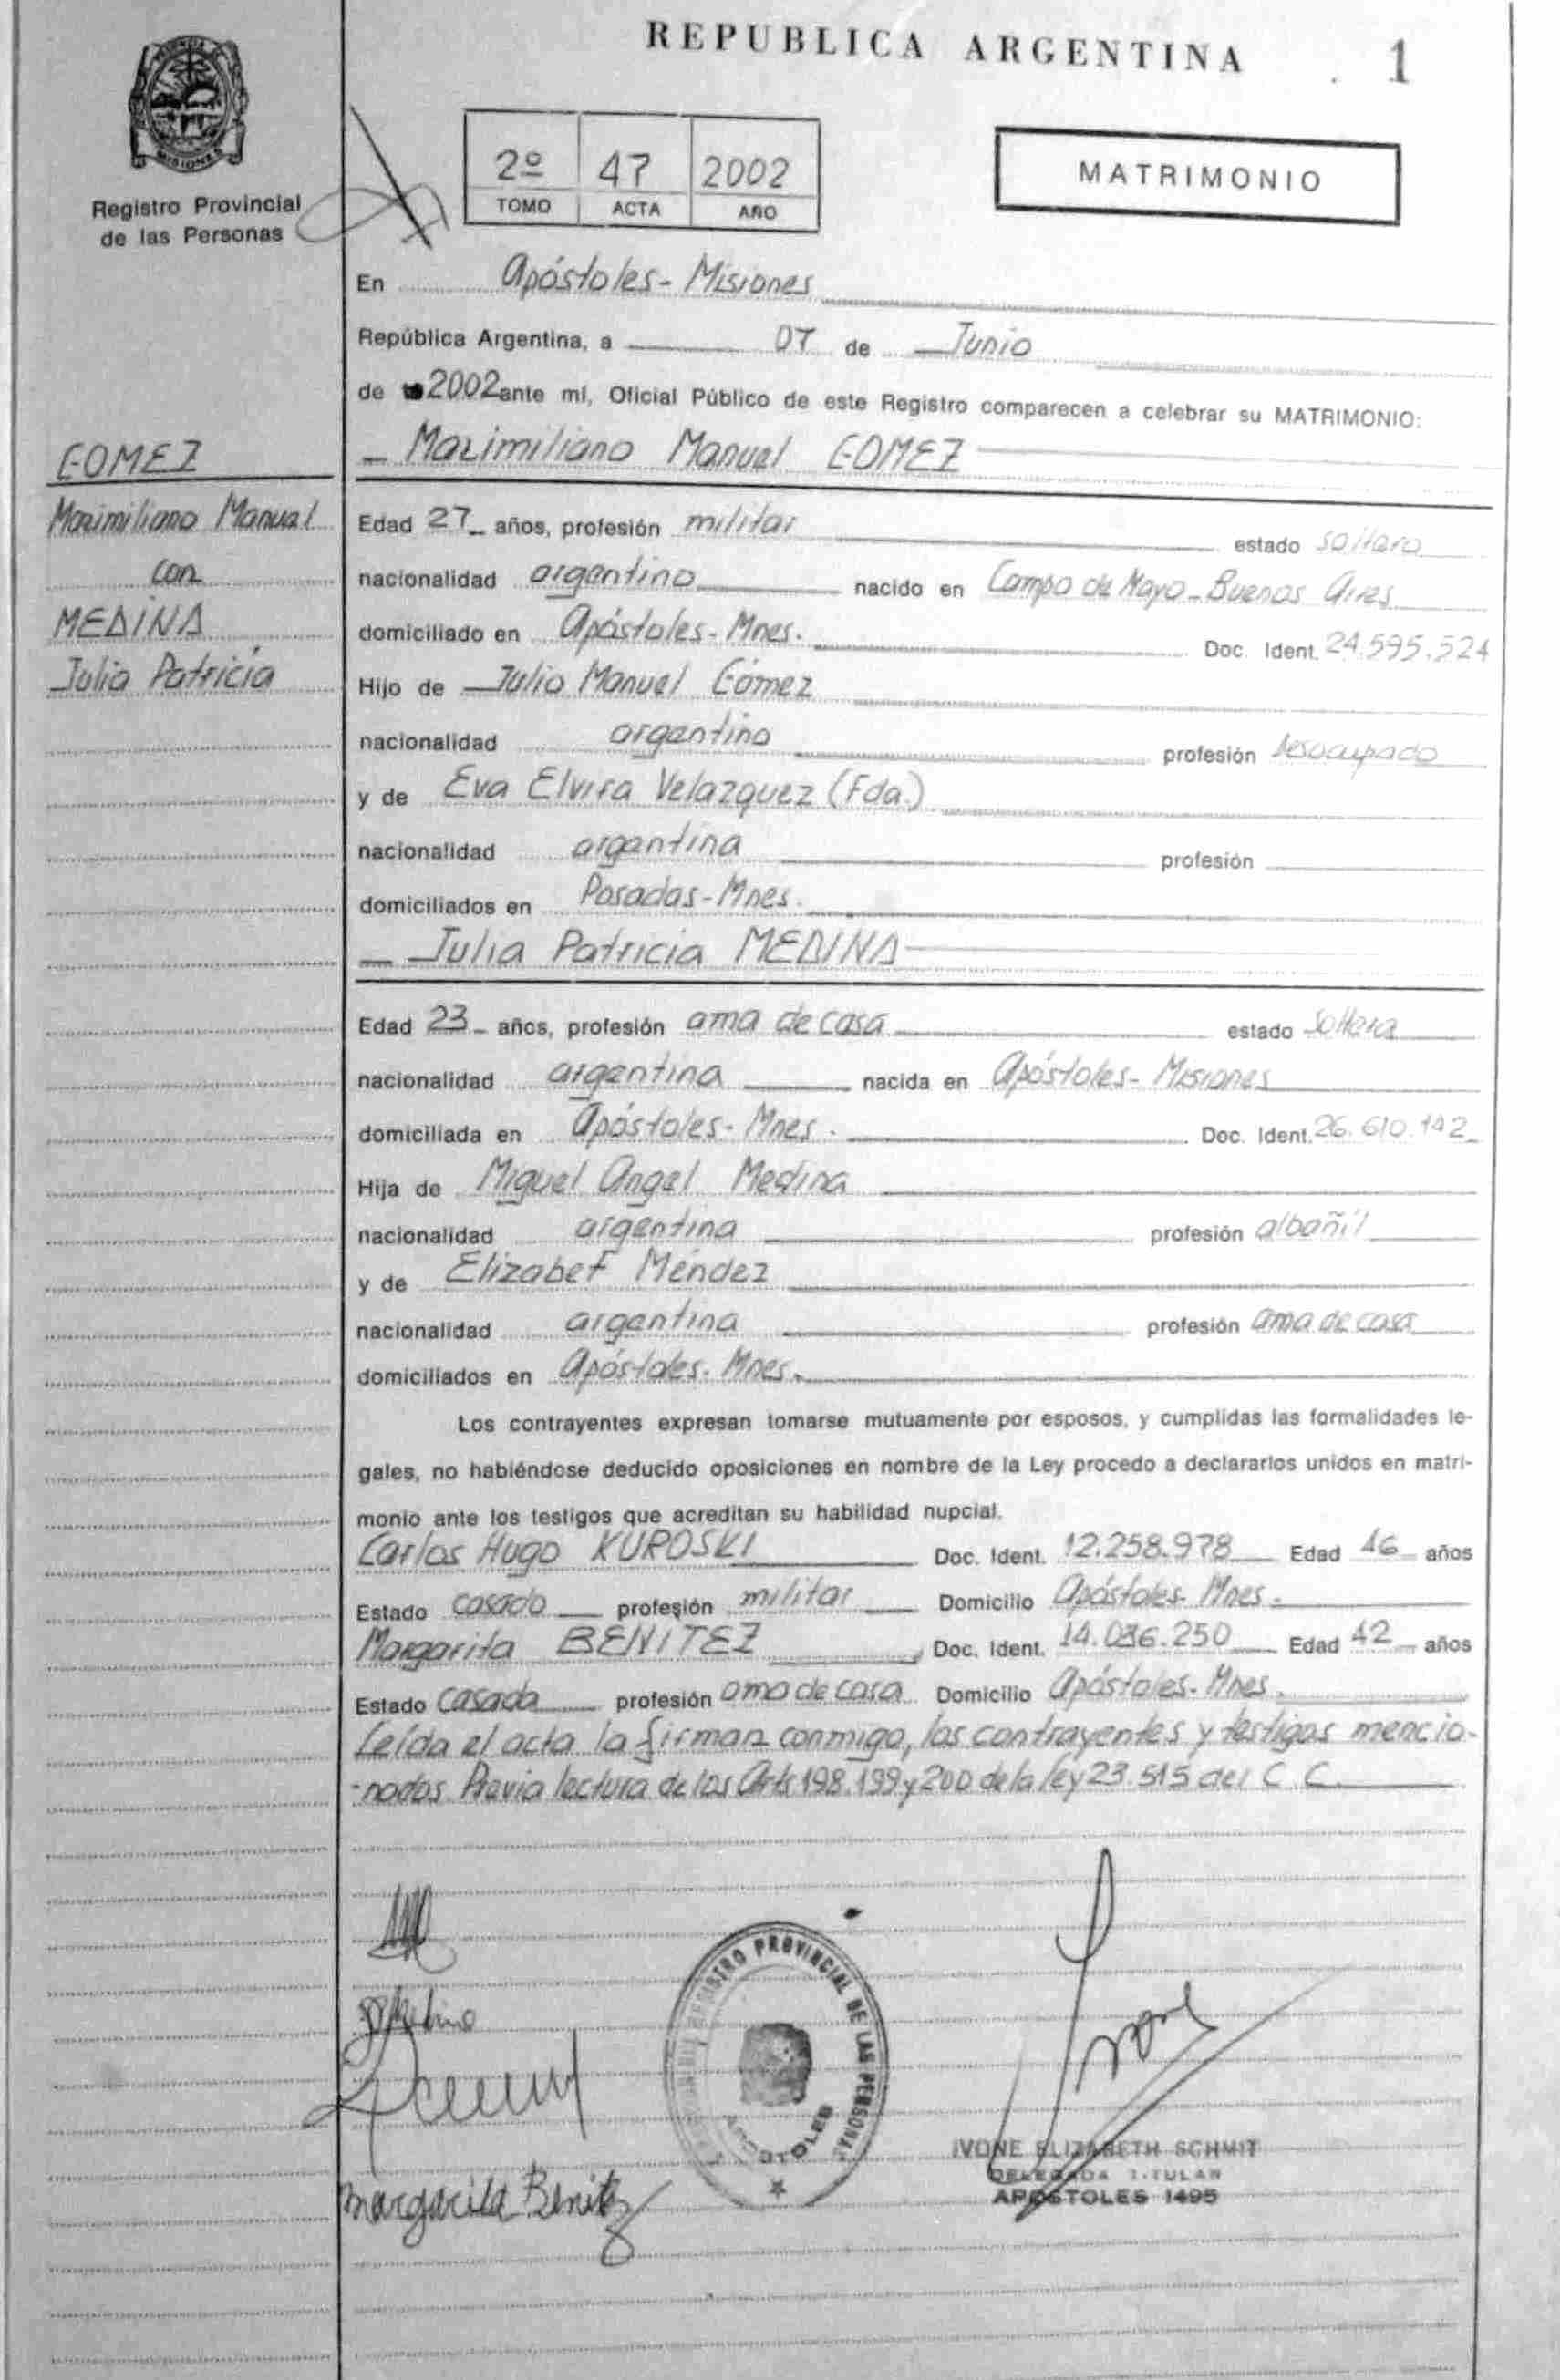 REPUBLICA ARGENTINA 1
MISIONES
Registro Provincial
de las Personas
2º 47 2002
TOMO ACTA AÑO
MATRIMONIO
En Apóstoles - Misiones
República Argentina, a 07 de Junio
de 2002 ante mí, Oficial Público de este Registro comparecen a celebrar su MATRIMONIO:
Maximiliano Manuel GOMEZ
GOMEZ
Maximiliano Manuel
con
MEDINA
Julia Patricia
Edad 27 años, profesión militar estado soltero
nacionalidad argentino nacido en Campo de Mayo - Buenos Aires
domiciliado en Apóstoles - Mnes. Doc. Ident. 24.595.524
Hijo de Julio Manuel Gómez
nacionalidad argentino profesión desocupado
y de Eva Elvira Velazquez (Fda.)
nacionalidad argentina profesión
domiciliados en Posadas - Mnes.
Julia Patricia MEDINA
Edad 23 años, profesión ama de casa estado soltera
nacionalidad argentina nacida en Apóstoles - Misiones
domiciliada en Apóstoles - Mnes. Doc. Ident. 26.610.142
Hija de Miguel Angel Medina
nacionalidad argentina profesión albañil
y de Elizabet Méndez
nacionalidad argentina profesión ama de casa
domiciliados en Apóstoles. Mnes.
Los contrayentes expresan tomarse mutuamente por esposos, y cumplidas las formalidades le-
gales, no habiéndose deducido oposiciones en nombre de la Ley procedo a declararlos unidos en matri-
monio ante los testigos que acreditan su habilidad nupcial.
Carlos Hugo KUROSKI Doc. Ident. 12.258.978 Edad 46 años
Estado casado profesión militar Domicilio Apóstoles - Mnes.
Margarita BENITEZ Doc. Ident. 14.036.250 Edad 42 años
Estado casada profesión ama de casa Domicilio Apóstoles - Mnes.
Leída el acta la firman conmigo, los contrayentes y testigos mencio-
-nados. Previa lectura de los Arts 198.199 y 200 de la ley 23.515 del C. C.
REGISTRO PROVINCIAL DE LAS PERSONAS
APOSTOLES
Margarita Benitez
IVONE ELIZABETH SCHMIT
DELEGADA TITULAR
APOSTOLES 1495